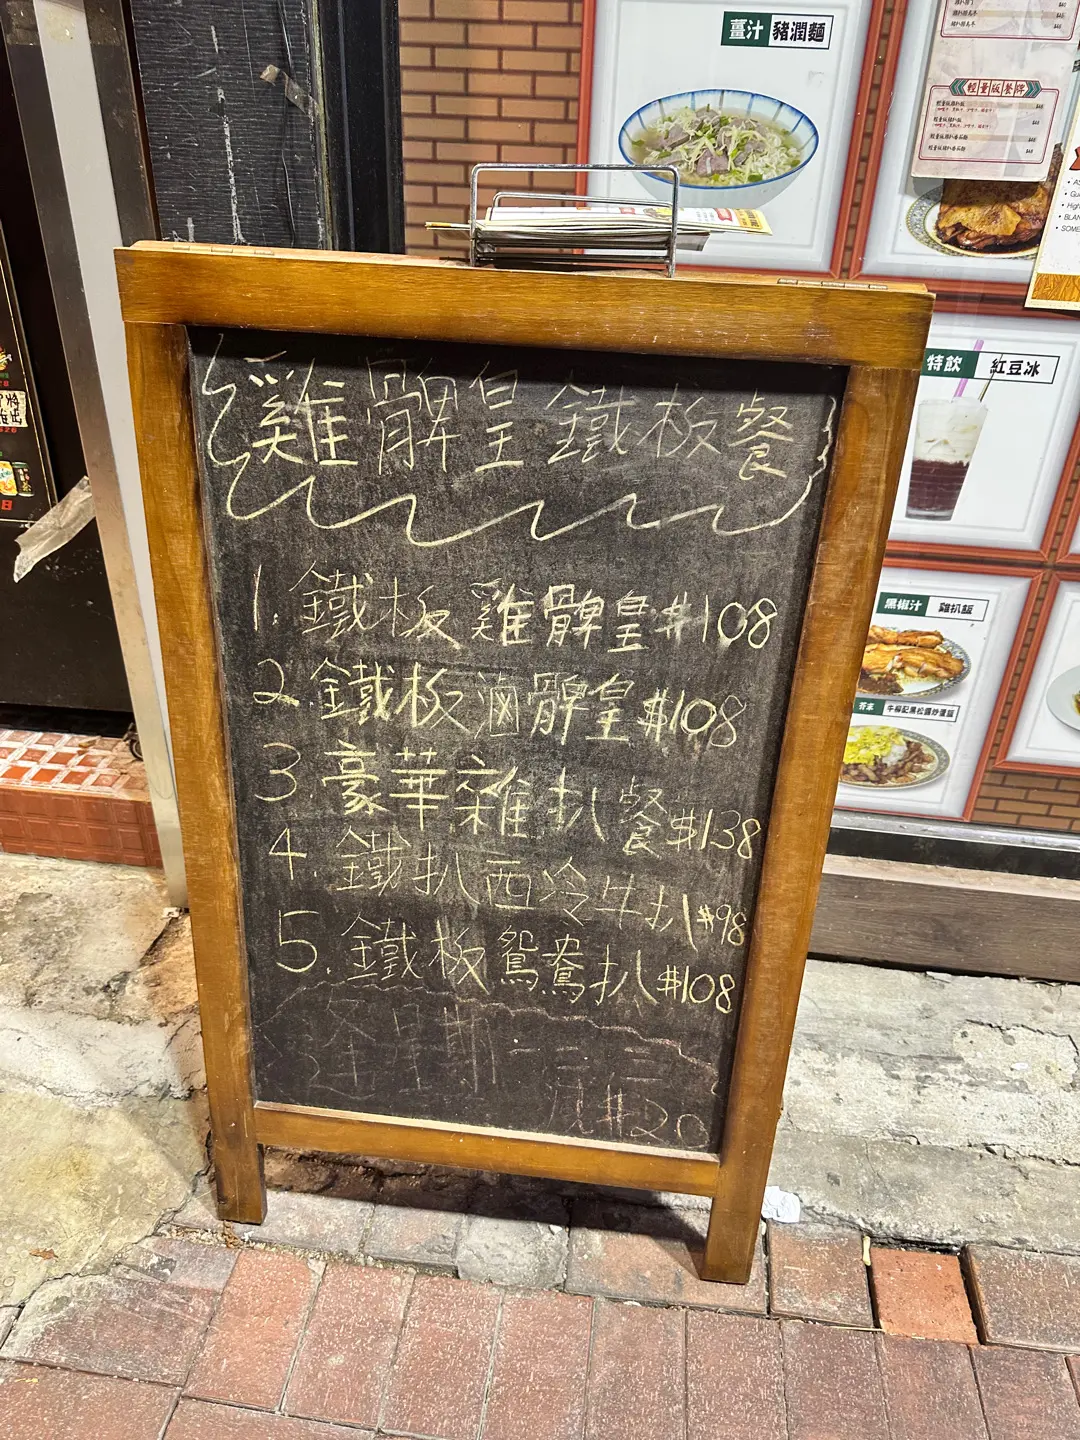 薑汁 豬潤麵
輕量版餐牌
特飲 紅豆冰
黑椒汁 雞扒飯
雞髀皇鐵板餐
1. 鐵板雞髀皇 $108
2. 鐵板滷髀皇 $108
3. 豪華雜扒餐 $138
4. 鐵扒西冷牛扒 $98
5. 鐵板鴛鴦扒 $108
逢星期一至三
減$20